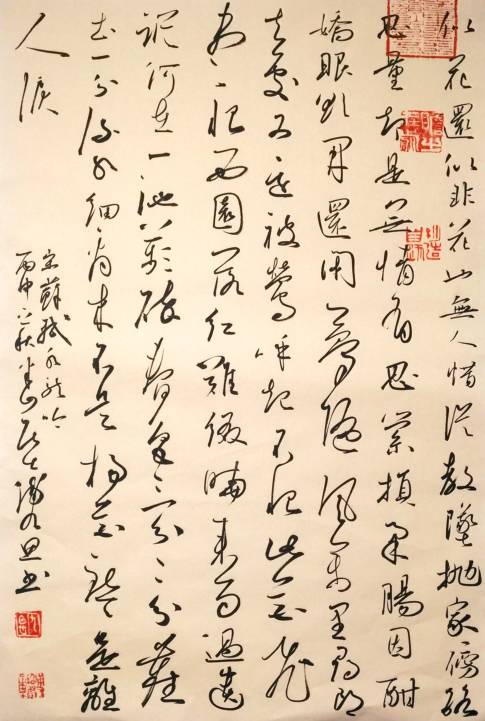 似花還似非花也無人惜從教墜拋家傍路
思量却是無情有思縈損柔腸困酣
嬌眼欲開還閉夢隨風萬里尋郎
去處又還被鶯呼起不恨此花飛
盡恨西園落紅難綴曉來雨過遺
蹤何在一池萍碎春色三分二分塵
土一分流水細看來不是楊花點點是離
人淚
宋蘇軾水龍吟
丙申之秋